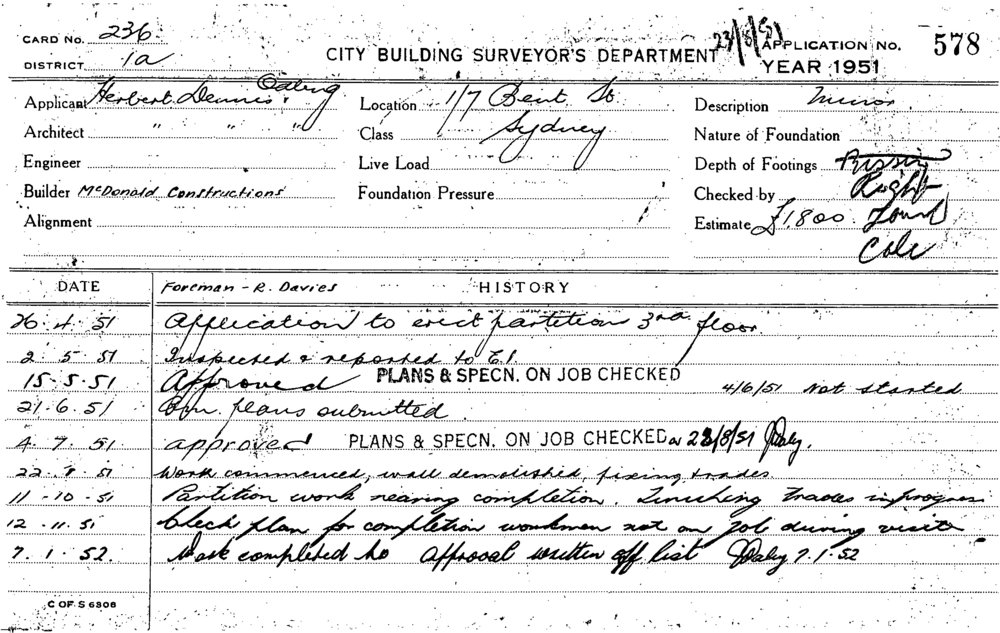 CARD No. 236
CITY BUILDING SURVEYOR'S DEPARTMENT
23/8/51
APPLICATION No. 578
DISTRICT 1a
YEAR 1951
Applicant Herbert Dennis
Location 1/7 Bent St
Description Minor
Architect " " "
Class Sydney
Nature of Foundation
Engineer
Live Load
Depth of Footings
Builder McDonald Constructions
Foundation Pressure
Checked by Right
Alignment
Estimate £1,800. Found
Cole
DATE
Foreman - R. Davies
HISTORY
26.4.51 Application to erect partition 3rd floor
2 5 51 Inspected & reported to E.I.
15-5-51 Approved PLANS & SPECN. ON JOB CHECKED 4/6/51 Not started
21.6.51 plans submitted
4.7.51 approved PLANS & SPECN. ON JOB CHECKED 22/8/51 JDaly.
22.8.51 Work commenced, wall demolished, fixing trades
11-10-51 Partition work nearing completion. Finishing trades in progress
12.11.51 Check plan for completion workmen not on job during visit
7.1.52. Work completed to approval written off list JDaly 7.1.52
C OF S 6306